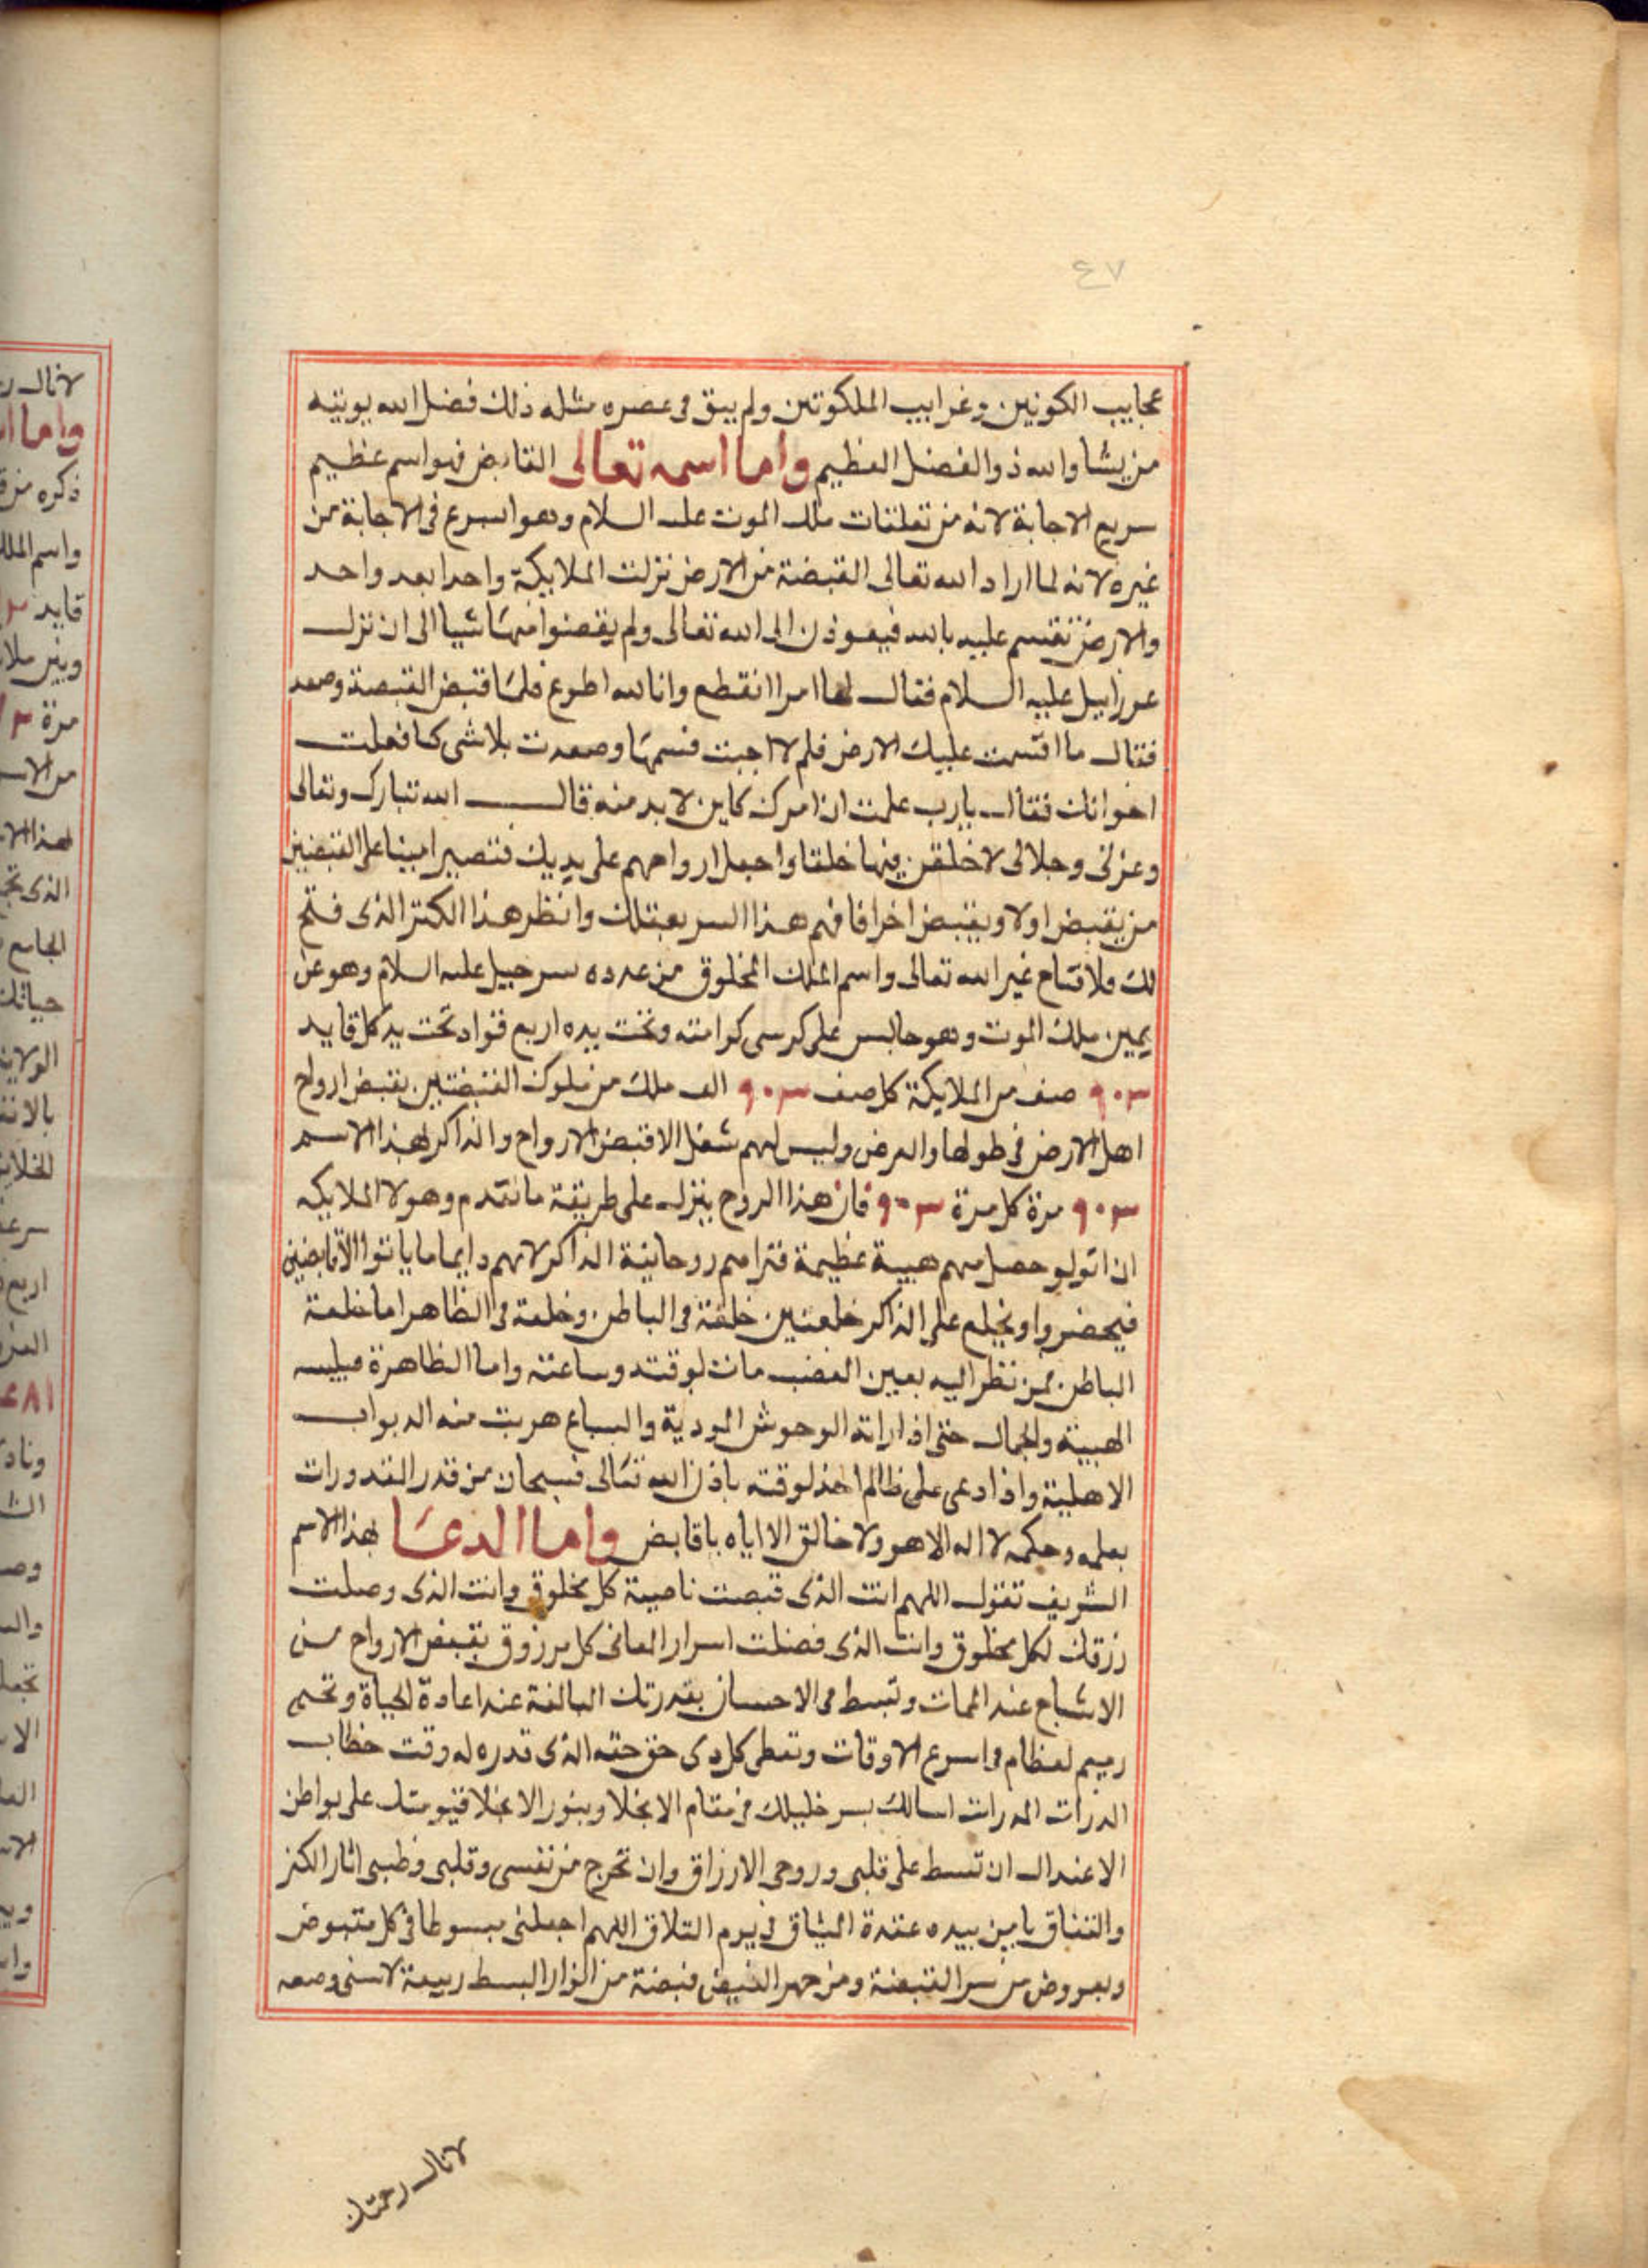 ٤٧
عجايب الكونين وغرايب الملكوتين ولم يبق فى عصره مثله ذلك فضل الله يوتيه
من يشا والله ذو الفضل العظيم واما اسمه تعالى القابض فهو اسم عظيم
سريع الاجابة لانه من تعلقات ملك الموت عليه السلام وهو اسرع فى الاجابة من
غيره لانه لما اراد الله تعالى القبضة من الارض نزلت الملايكة واحدا بعد واحد
والارض تقسم عليه بالله فيعوذن الى الله تعالى ولم يقضوا منها شيا الى ان نزل
عزراييل عليه السلام فقال لها امرا انقطع وانا لله اطوع فلما قبض القبضة وصعد
فقال ما اقسمت عليك الارض فلم لا اجبت قسمها وصعدت بلا شى كما فعلت
اخوانك فقال يارب علمت ان امرك كاين لا بد منه قال الله تبارك وتعالى
وعزتى وجلالى لاخلقن منها خلقا واجعل ارواحهم على يديك فتصير امينا على القبضتين
من يقبض اولا ويقبض اخرا فافهم هذا السر بعقلك وانظر هذا الكنز الذى فتح
لك ولا فتاح غير الله تعالى واسم الملك المخلوق من عدده سرحييل عليه السلام وهو عن
يمين ملك الموت وهو جالس على كرسى كرامته وتحت يده اربع قواد تحت يد كل قايد
٩٠٣ صف من الملايكة كل صف ٩٠٣ الف ملك من ملوك القبضتين يقبض ارواح
اهل الارض فى طولها والعرض وليس لهم شغل الا قبض الارواح والذاكر لهذا الاسم
٩٠٣ مرة كل مرة ٩٠٣ فان هذا الروح ينزل على طريقة ما تقدم وهولا الملايكه
ان اتو لو حصل منهم هيبة عظيمة فتراهم روحانية الذاكر لانهم دايما ما ياتوا الا قابضين
فيحضروا ويخلع على الذاكر خلعتين خلعة فى الباطن وخلعة فى الظاهر اما خلعة
الباطن فمن نظر اليه بعين الغضب مات لوقته وساعته واما الظاهرة فيلبسه
الهيبة والجمال حتى اذا راته الوحوش الموديه والسباع هربت منه الدواب
الاهلية واذا دعى على ظالم اخذ لوقته باذن الله تعالى فسبحان من قدر المقدورات
بعلمه وحكمه لا اله الا هو ولا خالق الا اياه يا قابض واما الدعا بهذا الاسم
الشريف تقول اللهم انت الذى قبضت ناصية كل مخلوق وانت الذى وصلت
رزقك لكل مخلوق وانت الذى فضلت اسرار المعانى كل مرزوق بقبض الارواح من
الاشباح عند الممات وتبسط فى الاحسان بقدرتك البالغة عند اعادة الحياة وتحيى
رميم لعظام فى اسرع الاوقات وتعطى كل ذى حق حقه الذى قدره له وقت خطاب
الذرات المدرات اسالك بسر خليلك فى مقام الانجلا وبنور الانجلا قيومتك على بواطن
الاعتدال ان تبسط على قلبى وروحى الارزاق وان تخرج من نفسى وقلبى وطبى اثار الكفر
والنفاق يا من بيده عقدة الميثاق فى يوم التلاق اللهم اجعلنى مبسوطا فى كل مقبوض
ومعروض من سر القبضة ومن جهر الفيض قبضة من انوار البسط ربيعة لاسنى وصعه
لانال رحمتك